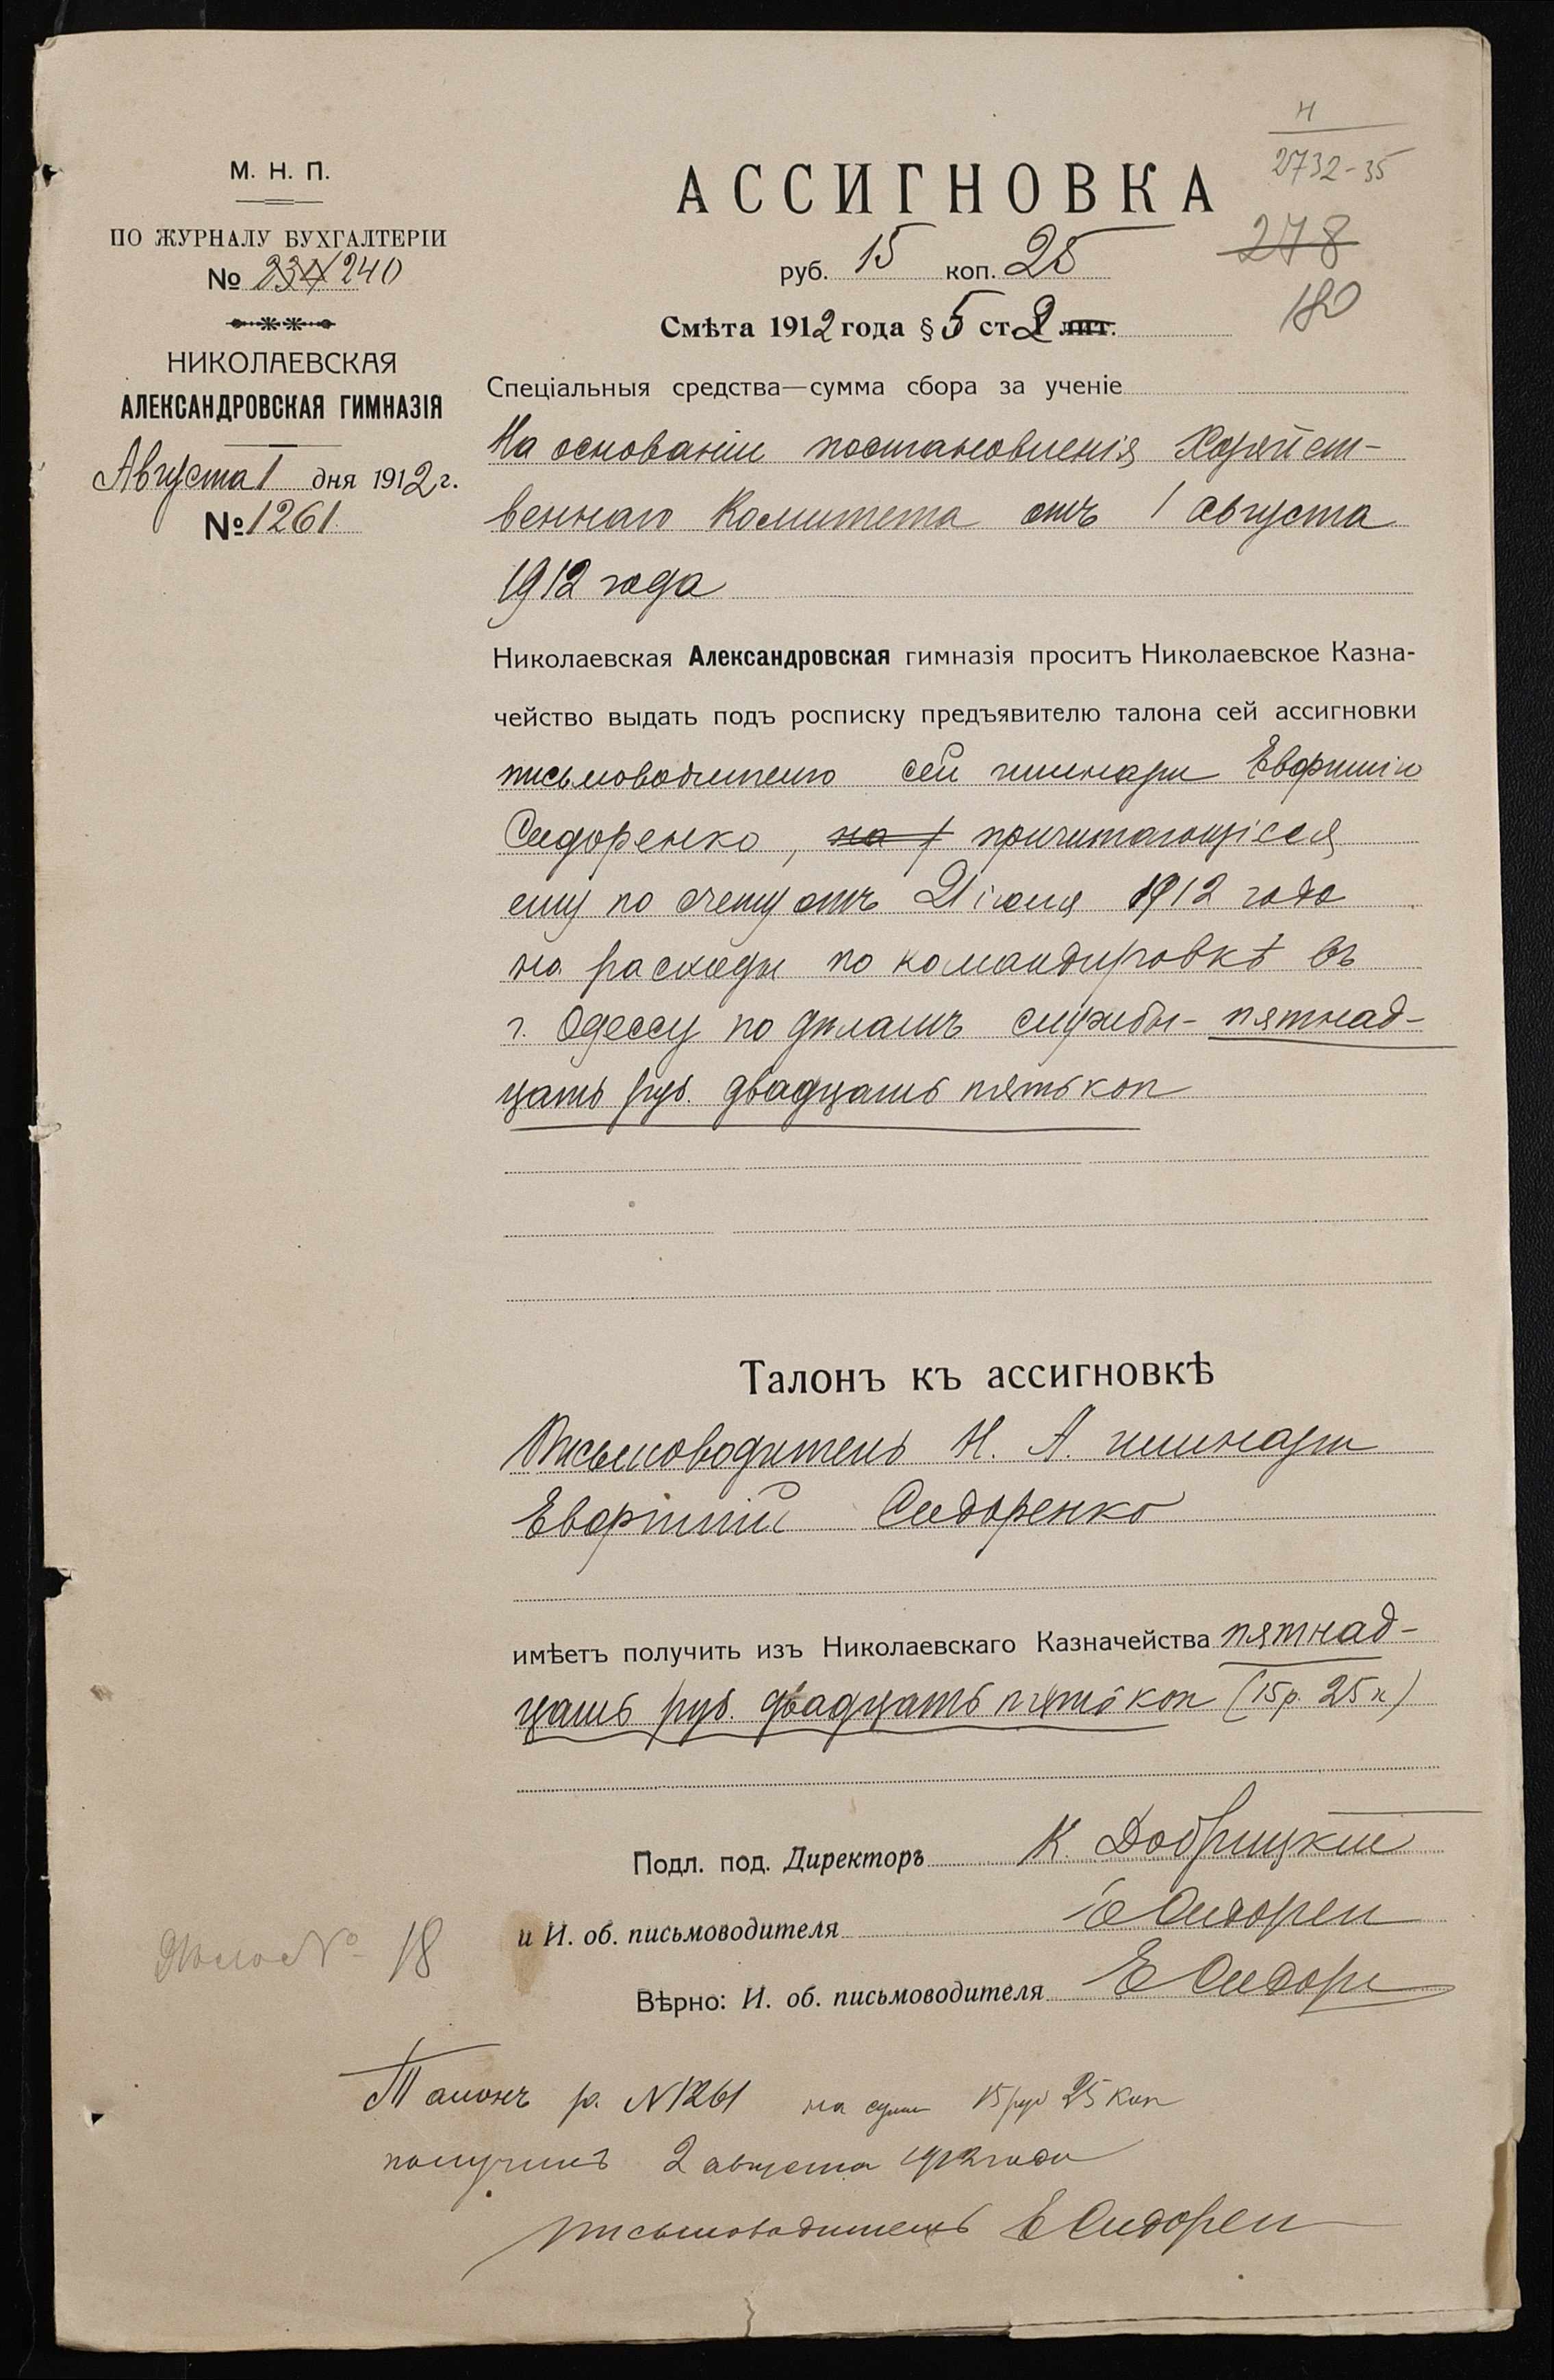 М. Н. П.
ПО ЖУРНАЛУ БУХГАЛТЕРІИ
№ 234 240
НИКОЛАЕВСКАЯ
АЛЕКСАНДРОВСКАЯ ГИМНАЗІЯ
Августа 1 дня 1912 г.
№ 1261
Н
2732-35
278
180
АССИГНОВКА
руб. 15 коп. 25
Смѣта 1912 года § 5 ст 2 лит.
Спеціальныя средства—сумма сбора за ученіе
На основаніи постановленія Хозяйст-
веннаго Комитета отъ 1 августа
1912 года
Николаевская Александровская гимназія проситъ Николаевское Казна-
чейство выдать подъ росписку предъявителю талона сей ассигновки
письмоводителю сей гимназіи
Сидоренко, на причитающіеся
ему по счету отъ 21 іюля 1912 года
на расходы по командировкѣ въ
г. Одессу по дѣламъ службы - пятнад-
цать руб. двадцать пять коп
Талонъ къ ассигновкѣ
Письмоводитель Н. А. гимназіи
Сидоренко
имѣетъ получить изъ Николаевскаго Казначейства пятнад-
цать руб. двадцать пять коп (15 р. 25 к)
Подл. под. Директоръ К. Добрицкій
и И. об. письмоводителя Е Сидорен
Вѣрно: И. об. письмоводителя Е Сидоре
Дѣло № 18
Талонъ за N 1261 на сумму 15 руб 25 коп
получилъ 2 августа 1912 года
письмоводитель Е Сидорен